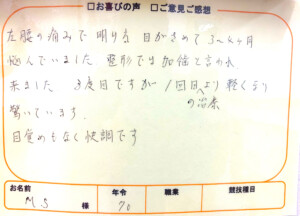 □お喜びの声 □ご意見ご感想
左腰の痛みで明け方 目がさめて3~4ヶ月
悩んでいました 整形では勉強と言われ
来ました 3度目ですが 1回目より軽くなり
の治療
驚いています。
目覚めもなく快調です
お名前 年令 職業 競技種目
M S 様 70